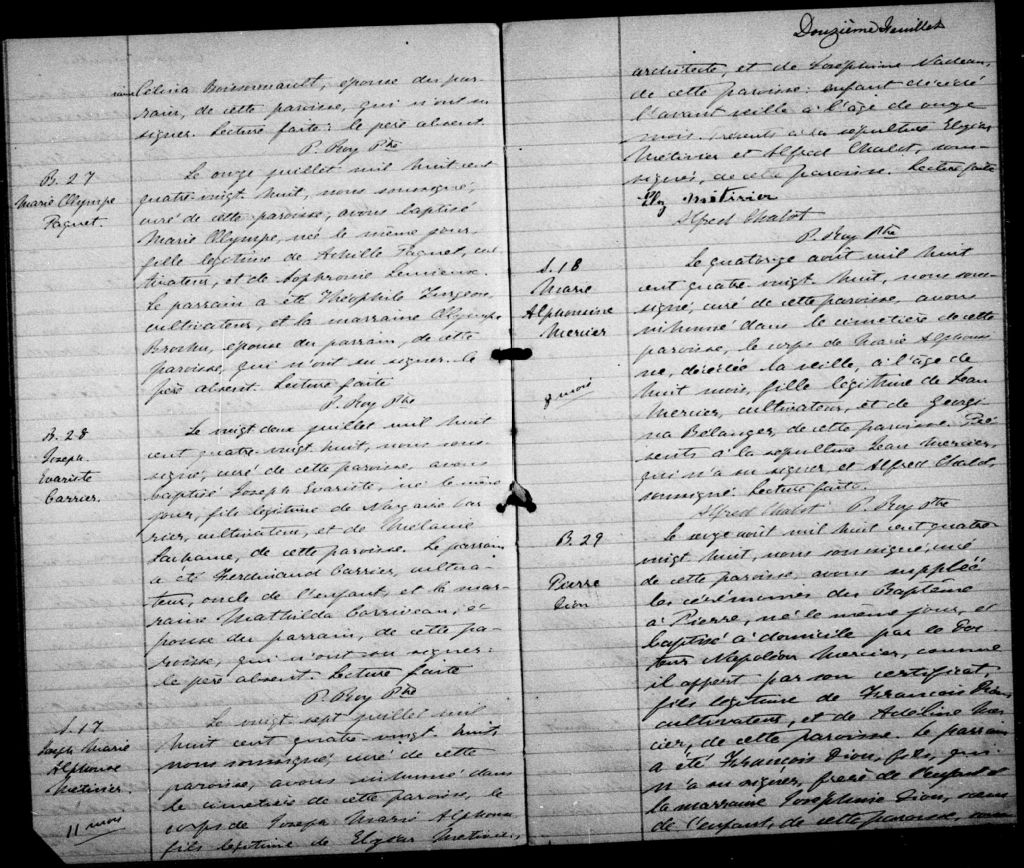 raine Celina Boissonnault, épouse du par-
rain, de cette paroisse, qui n'ont su
signer. Lecture faite: le père absent.
P. Roy Ptre
B. 27
Marie Olympe
Paquet.
Le onze juillet mil huit cent
quatre-vingt huit, nous soussigné,
curé de cette paroisse, avons baptisé
Marie Olympe, née le même jour,
fille légitime de Achille Paquet, cul
tivateur, et de Sophronie Lemieux.
Le parrain a été Théophile Turgeon,
cultivateur, et la marraine Olympe
Brochu, épouse du parrain, de cette
paroisse, qui n'ont su signer. Le
père absent. Lecture faite
P. Roy Ptre
B. 28
Joseph
Evariste
Carrier.
Le vingt deux juillet mil huit
cent quatre-vingt huit, nous sous-
signé, curé de cette paroisse, avons
baptisé Joseph Evariste, né le même
jour, fils légitime de Nazaire Car-
rier, cultivateur, et de Mélanie
Lachance, de cette paroisse. Le parrain
a été Ferdinand Carrier, cultiva-
teur, oncle de l'enfant, et la mar-
raine Mathilda Corriveau, é-
pouse du parrain, de cette pa-
roisse, qui n'ont su signer:
le père absent. Lecture faite
P. Roy Ptre
S. 17
Joseph Marie
Alphonse
Métivier.
11 mois
Le vingt sept juillet mil
huit cent quatre-vingt huit,
nous soussigné, curé de cette
paroisse, avons inhumé dans
le cimetière de cette paroisse, le
corps de Joseph Marie Alphonse
fils légitime de Elzéar Métivier,
Douzième feuillet
architecte, et de Joséphine Nadeau,
de cette paroisse: enfant décédé
l'avant veille à l'âge de onze
mois. Présents à la sépulture Elzéar
Métivier et Alfred Chabot, sous-
signés, de cette paroisse. Lecture faite
Elz Métivier
Alfred Chabot
P. Roy Ptre
S. 18
Marie
Alphonsine
Mercier
8 mois
Le quatorze août mil huit
cent quatre vingt huit, nous sous-
signé, curé de cette paroisse, avons
inhumé dans le cimetière de cette
paroisse, le corps de Marie Alphonsi
ne, décédée la veille, à l'âge de
huit mois, fille légitime de Jean
Mercier, cultivateur, et de Georgi-
na Bélanger, de cette paroisse. Pré-
sents à la sépulture Jean Mercier,
qui n'a su signer, et Alfred Chabot,
soussigné. Lecture faite.
Alfred Chabot P. Roy Ptre
B. 29
Pierre
Dion
Le seize août mil huit cent quatre-
vingt huit, nous soussigné, curé
de cette paroisse, avons suppléé
les cérémonies du Baptême
à Pierre, né le même jour, et
baptisé à domicile par le Doc-
teur Napoléon Mercier, comme
il appert par son certificat,
fils légitime de François Dion
cultivateur, et de Adéline Mer-
cier, de cette paroisse. Le parrain
a été François Dion, fils, qui
n'a su signer, frère de l'enfant et
la marraine Joséphine Dion, soeur
de l'enfant, de cette paroisse,